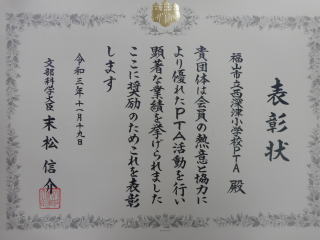 表彰状
福山市立西深津小学校PTA 殿
貴団体は会員の熱意と協力に
より優れたPTA活動を行い
顕著な業績を挙げられました
ここに奨励のためこれを表彰
します
令和三年十一月十九日
文部科学大臣 末松信介